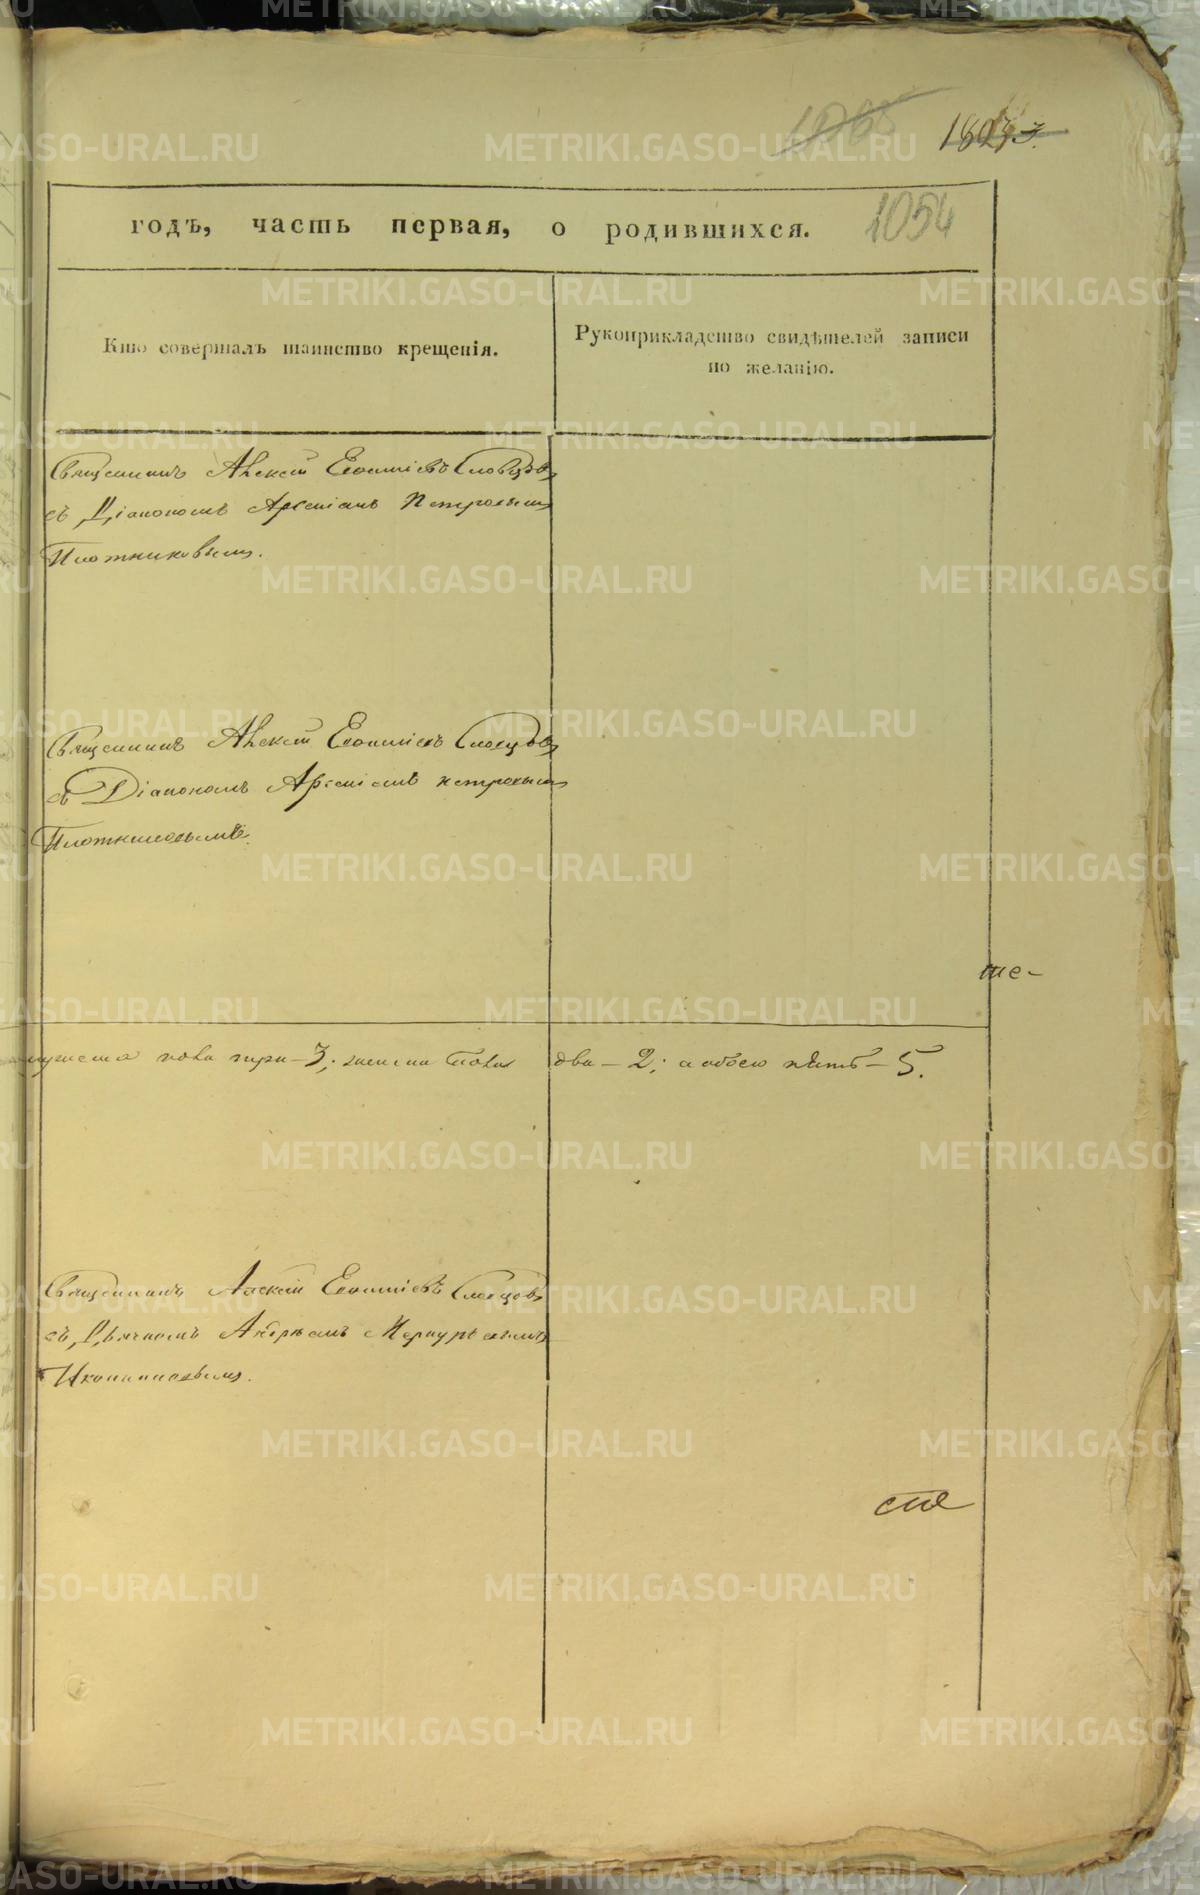 1054
годъ, часть первая, о родившихся.
Кто совершалъ таинство крещенія.
Рукоприкладство свидѣтелей записи
по желанію.
Священникъ Алексѣй Евѳиміевъ Словцовъ
съ Діакономъ Арсеніемъ Петровымъ
Плотниковымъ.
Священникъ Алексѣй Евѳиміевъ Словцовъ
съ Діакономъ Арсеніемъ Петровымъ
Плотниковымъ.
те-
мужеска пола три - 3; женска пола два - 2; а обоего пять - 5.
Священникъ Алексѣй Евѳиміевъ Словцовъ
съ Дьячкомъ Андреемъ Меркурьевымъ
Иконниковымъ.
METRIKI.GASO-URAL.RU